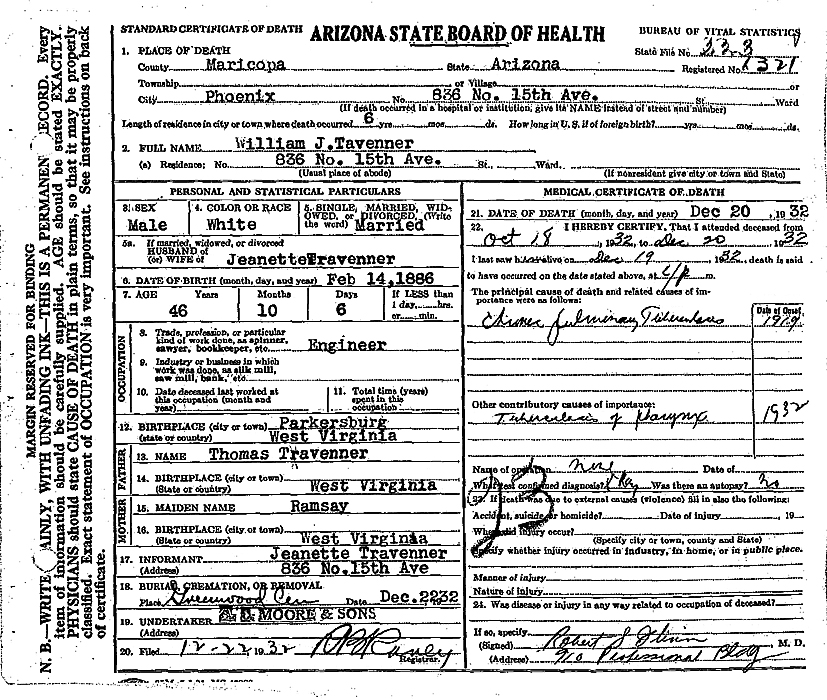 STANDARD CERTIFICATE OF DEATH ARIZONA STATE BOARD OF HEALTH BUREAU OF VITAL STATISTICS
1. PLACE OF DEATH State File No. 323
County Maricopa State Arizona Registered No. 1321
Township or Village or
City Phoenix No. 836 No. 15th Ave. St. Ward
(If death occurred in a hospital or institution, give its NAME instead of street and number)
Length of residence in city or town where death occurred 6 yrs. mos. ds. How long in U. S. if of foreign birth? yrs. mos. ds.
2. FULL NAME William J.Tavenner
(a) Residence: No. 836 No. 15th Ave. St. Ward.
(Usual place of abode) (If nonresident give city or town and State)
PERSONAL AND STATISTICAL PARTICULARS
3. SEX Male
4. COLOR OR RACE White
5. SINGLE, MARRIED, WIDOWED, or DIVORCED, (Write the word) Married
5a. If married, widowed, or divorced
HUSBAND of
(or) WIFE of Jeanette Travenner
6. DATE OF BIRTH (month, day, and year) Feb 14,1886
7. AGE Years Months Days If LESS than
1 day, hrs.
or min.
46 10 6
OCCUPATION
8. Trade, profession, or particular
kind of work done, as spinner,
sawyer, bookkeeper, etc. Engineer
9. Industry or business in which
work was done, as silk mill,
saw mill, bank, etc.
10. Date deceased last worked at
this occupation (month and
year)
11. Total time (years)
spent in this
occupation
12. BIRTHPLACE (city or town) Parkersburg
(state or country) West Virginia
FATHER
13. NAME Thomas Travenner
14. BIRTHPLACE (city or town)
(State or country) West Virginia
MOTHER
15. MAIDEN NAME Ramsay
16. BIRTHPLACE (city or town)
(State or country) West Virginia
17. INFORMANT Jeanette Travenner
(Address) 836 No.15th Ave
18. BURIAL, CREMATION, OR REMOVAL
Place Greenwood Cem Date Dec.2232
19. UNDERTAKER MOORE & SONS
(Address)
20. Filed 12-22 1932
Registrar.
MEDICAL CERTIFICATE OF DEATH
21. DATE OF DEATH (month, day, and year) Dec 20 , 1932
22. I HEREBY CERTIFY, That I attended deceased from
Oct 18 , 1932, to Dec 20 , 1932
I last saw h alive on Dec 19 , 1932, death is said
to have occurred on the date stated above, at m.
The principal cause of death and related causes of importance were as follows:
Date of Onset
Chronic Pulmonary Tuberculosis
Other contributory causes of importance:
Tuberculosis of pharynx 1932
Name of operation none Date of
What test confirmed diagnosis? X Ray Was there an autopsy? no
23. If death was due to external causes (violence) fill in also the following:
Accident, suicide or homicide? Date of injury , 19
Where did injury occur?
(Specify city or town, county and State)
Specify whether injury occurred in industry, in home, or in public place.
Manner of injury
Nature of injury
24. Was disease or injury in any way related to occupation of deceased?
If so, specify
(Signed) Robert J , M. D.
(Address) 910 Professional Bldg
MARGIN RESERVED FOR BINDING
N. B.—WRITE AINLY, WITH UNFADING INK—THIS IS A PERMANEN ECORD. Every
item of information should be carefully supplied. AGE should be stated EXACTLY.
PHYSICIANS should state CAUSE OF DEATH in plain terms, so that it may be properly
classified. Exact statement of OCCUPATION is very important. See instructions on back
of certificate.